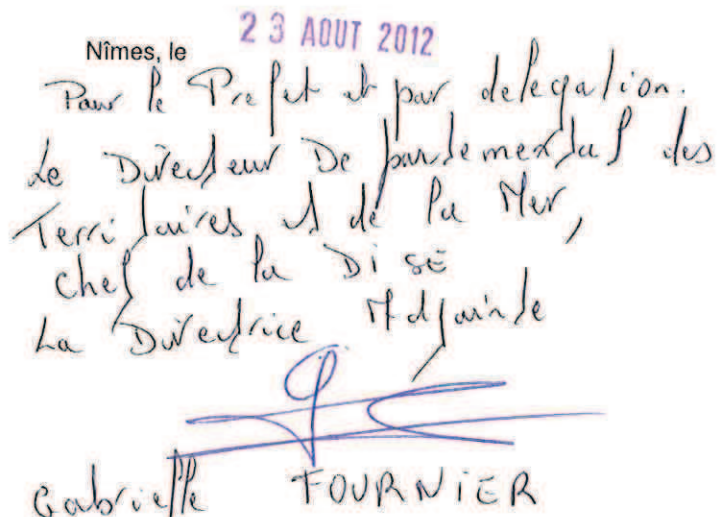 Nîmes, le 23 AOUT 2012
Pour le Prefet et par delegation.
Le Directeur Departemental des
Territoires et de la Mer,
Chef de la DiSE
La Directrice Adjointe
Gabrielle FOURNiER